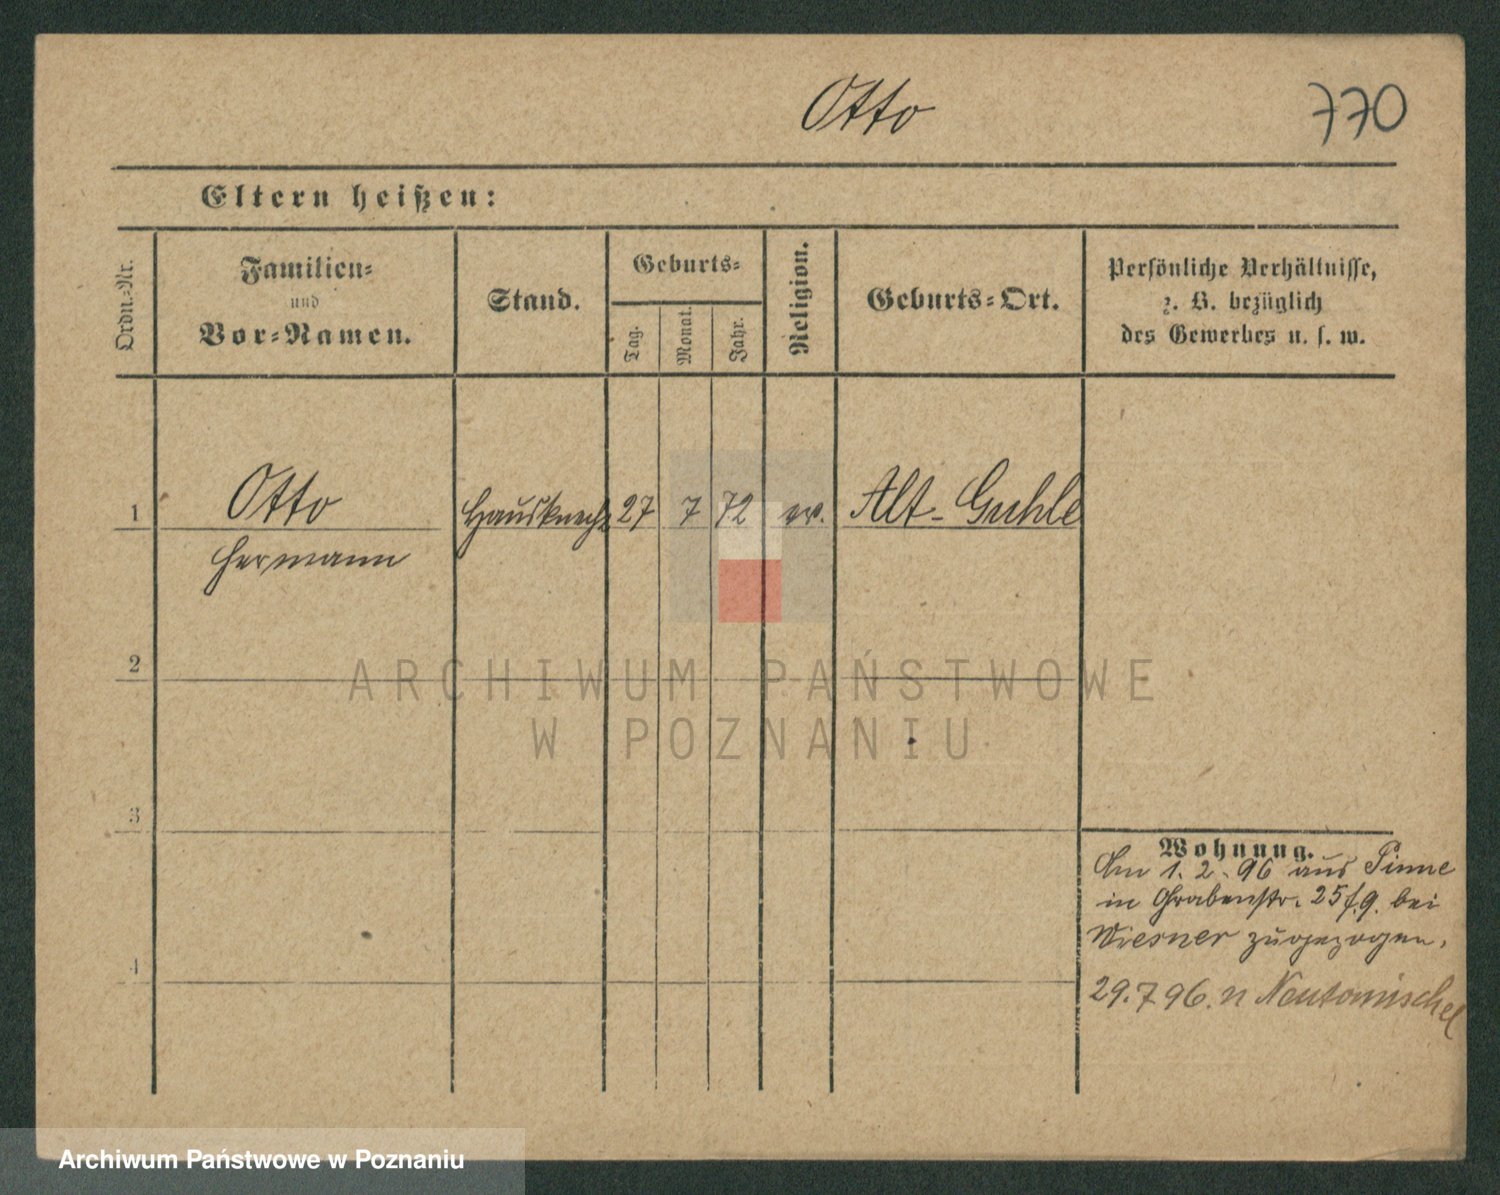 Otto
770
Eltern heißen:
Ordn.-Nr.
Familien-
und
Vor-Namen.
Stand.
Geburts-
Tag.
Monat.
Jahr.
Religion.
Geburts-Ort.
Persönliche Verhältnisse,
z. B. bezüglich
des Gewerbes u. s. w.
1
Otto
Hermann
Hausknecht
27
7
72
ev.
Alt-Guhle
2
3
4
Wohnung.
Am 1. 2. 96 aus Pinne
in Grabenstr. 25 f. 9. bei
Wiesner zugezogen.
29.7 96. n Neutomischel
ARCHIWUM PAŃSTWOWE
W POZNANIU
Archiwum Państwowe w Poznaniu